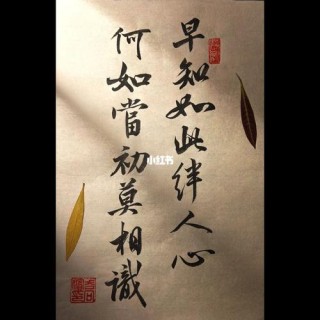 早知如此绊人心
何如當初莫相識
小红书